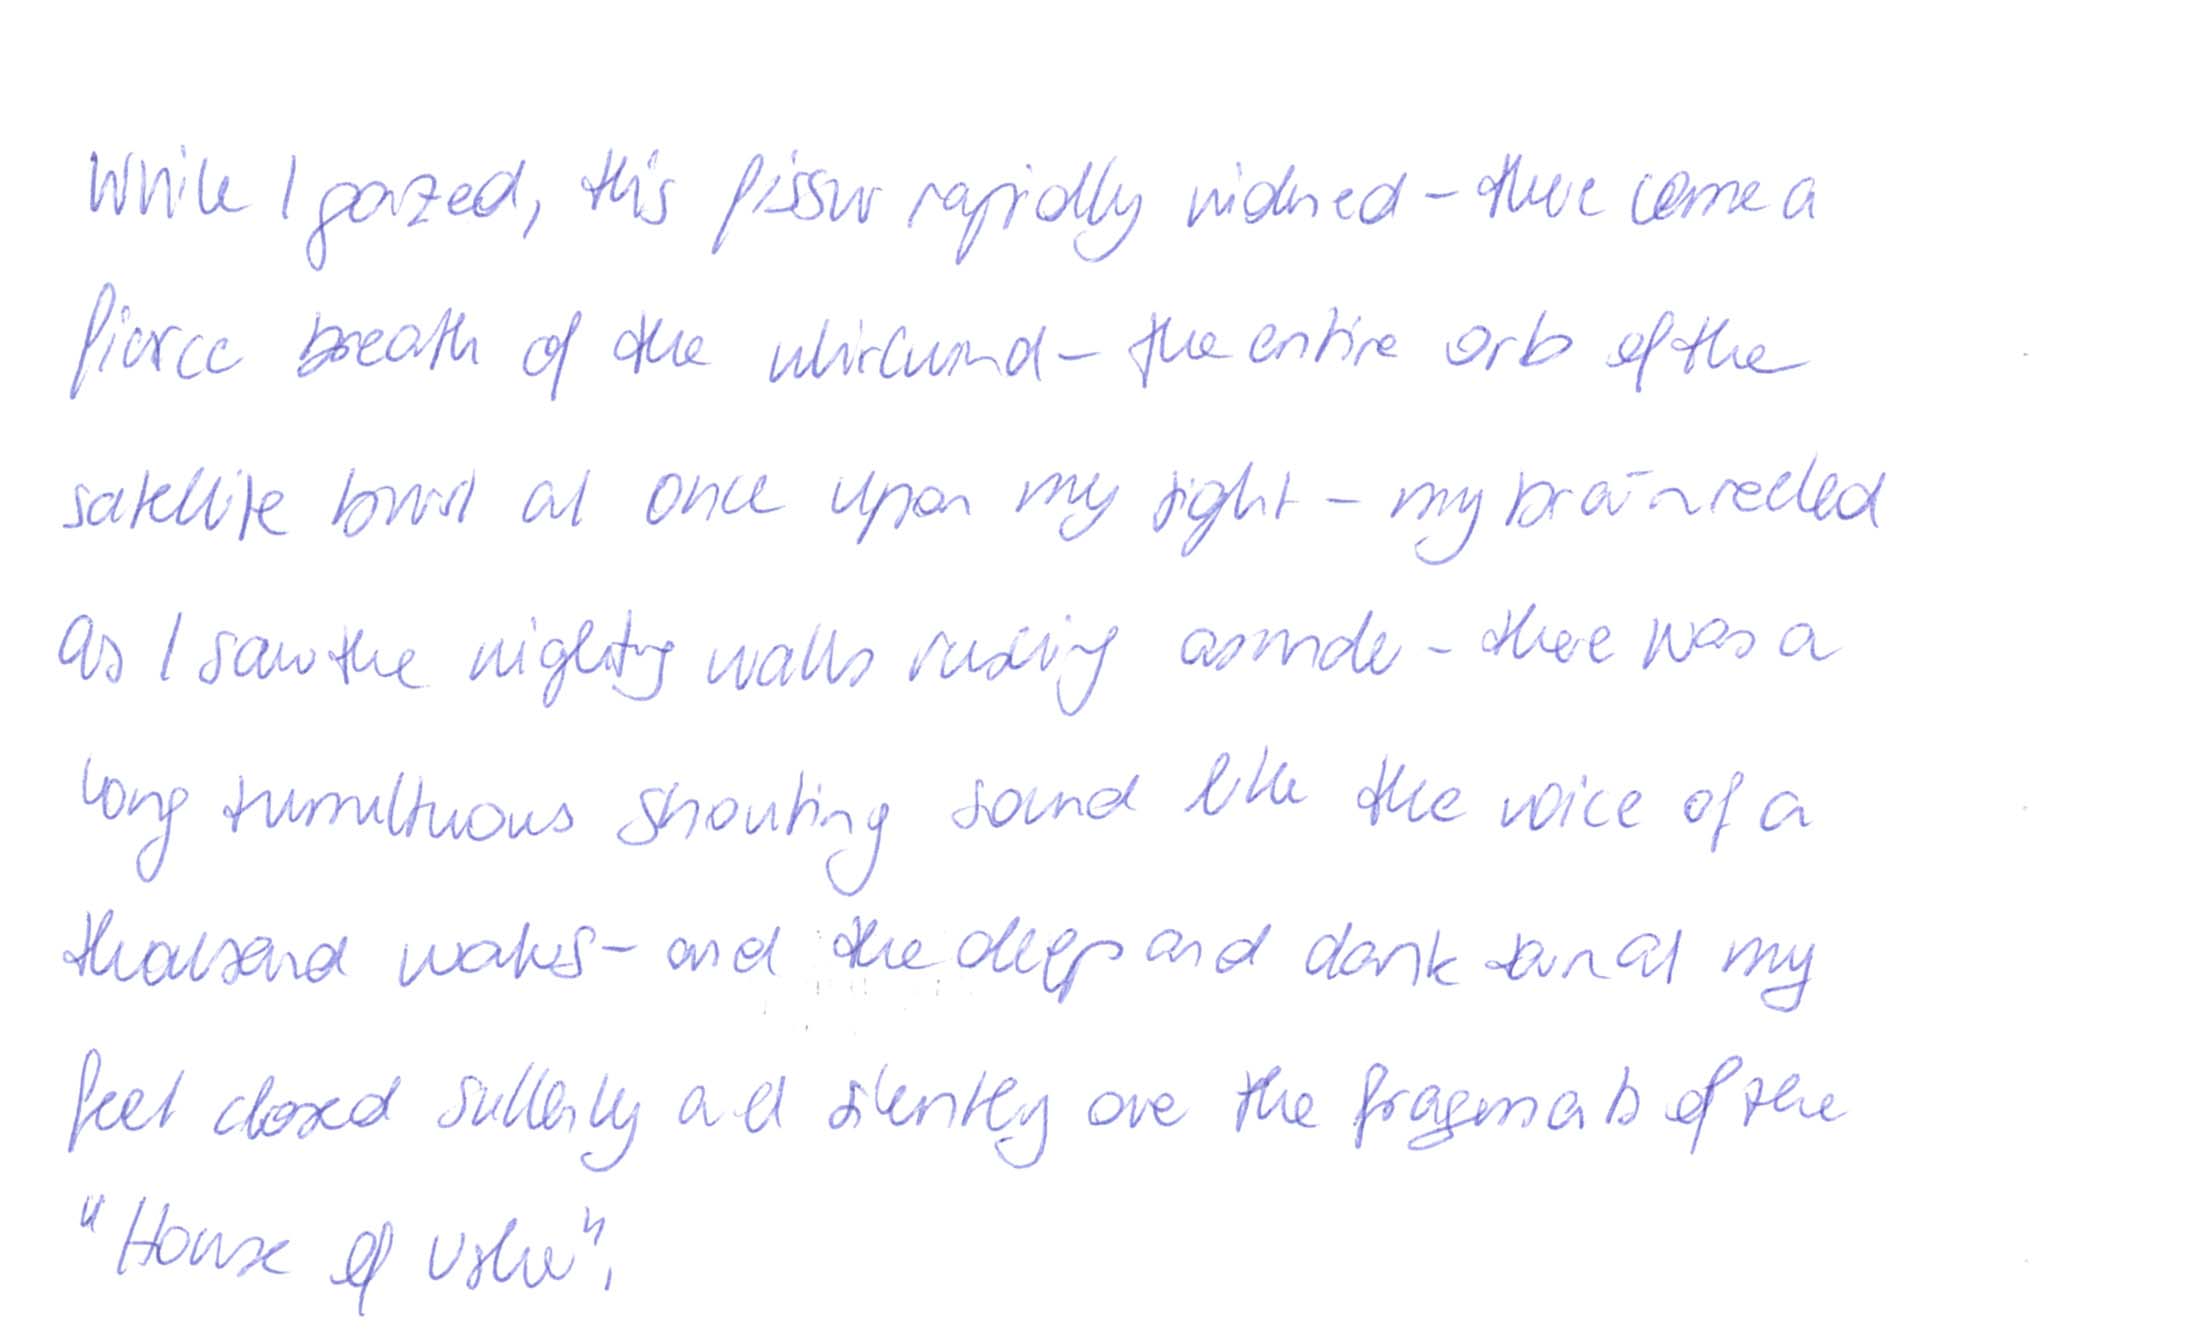 While I gazed, this fissure rapidly widened - there came a
fierce breath of the whirlwind - the entire orb of the
satellite burst at once upon my sight - my brain reeled
as I saw the mighty walls rushing asunder - there was a
long tumultuous shouting sound like the voice of a
thousand waters - and the deep and dank tarn at my
feet closed sullenly and silently over the fragments of the
"House of Usher".